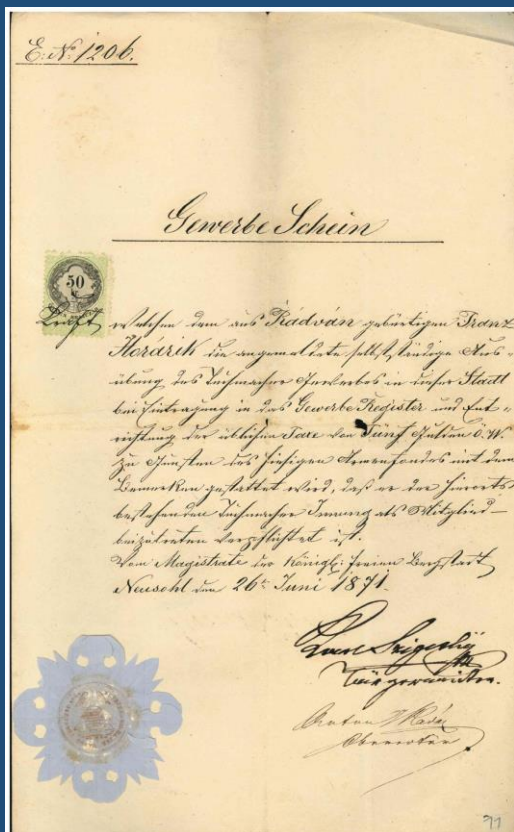 E: №: 1206.
Gewerbe Schein
50
Kraft welchem dem aus Rádván gebürtigen Franz
Horárik die angemeldete selbstständige Aus-
übung des Tuchmacher Gewerbes in dieser Stadt
bei Eintragung in das Gewerbe Register und Ent-
richtung der üblichen Taxe von Fünf Gulden ö. W.
zu Gunsten des hiesigen Armenfondes mit dem
Bemerken gestattet wird, daß er der hierorts
bestehenden Tuchmacher Innung als Mitglied
beizutreten verpflichtet ist.
Vom Magistrate der Königl: freien Bergstadt
Neusohl den 26t Juni 1871.
Bürgermeister.
Anton
Obernotär